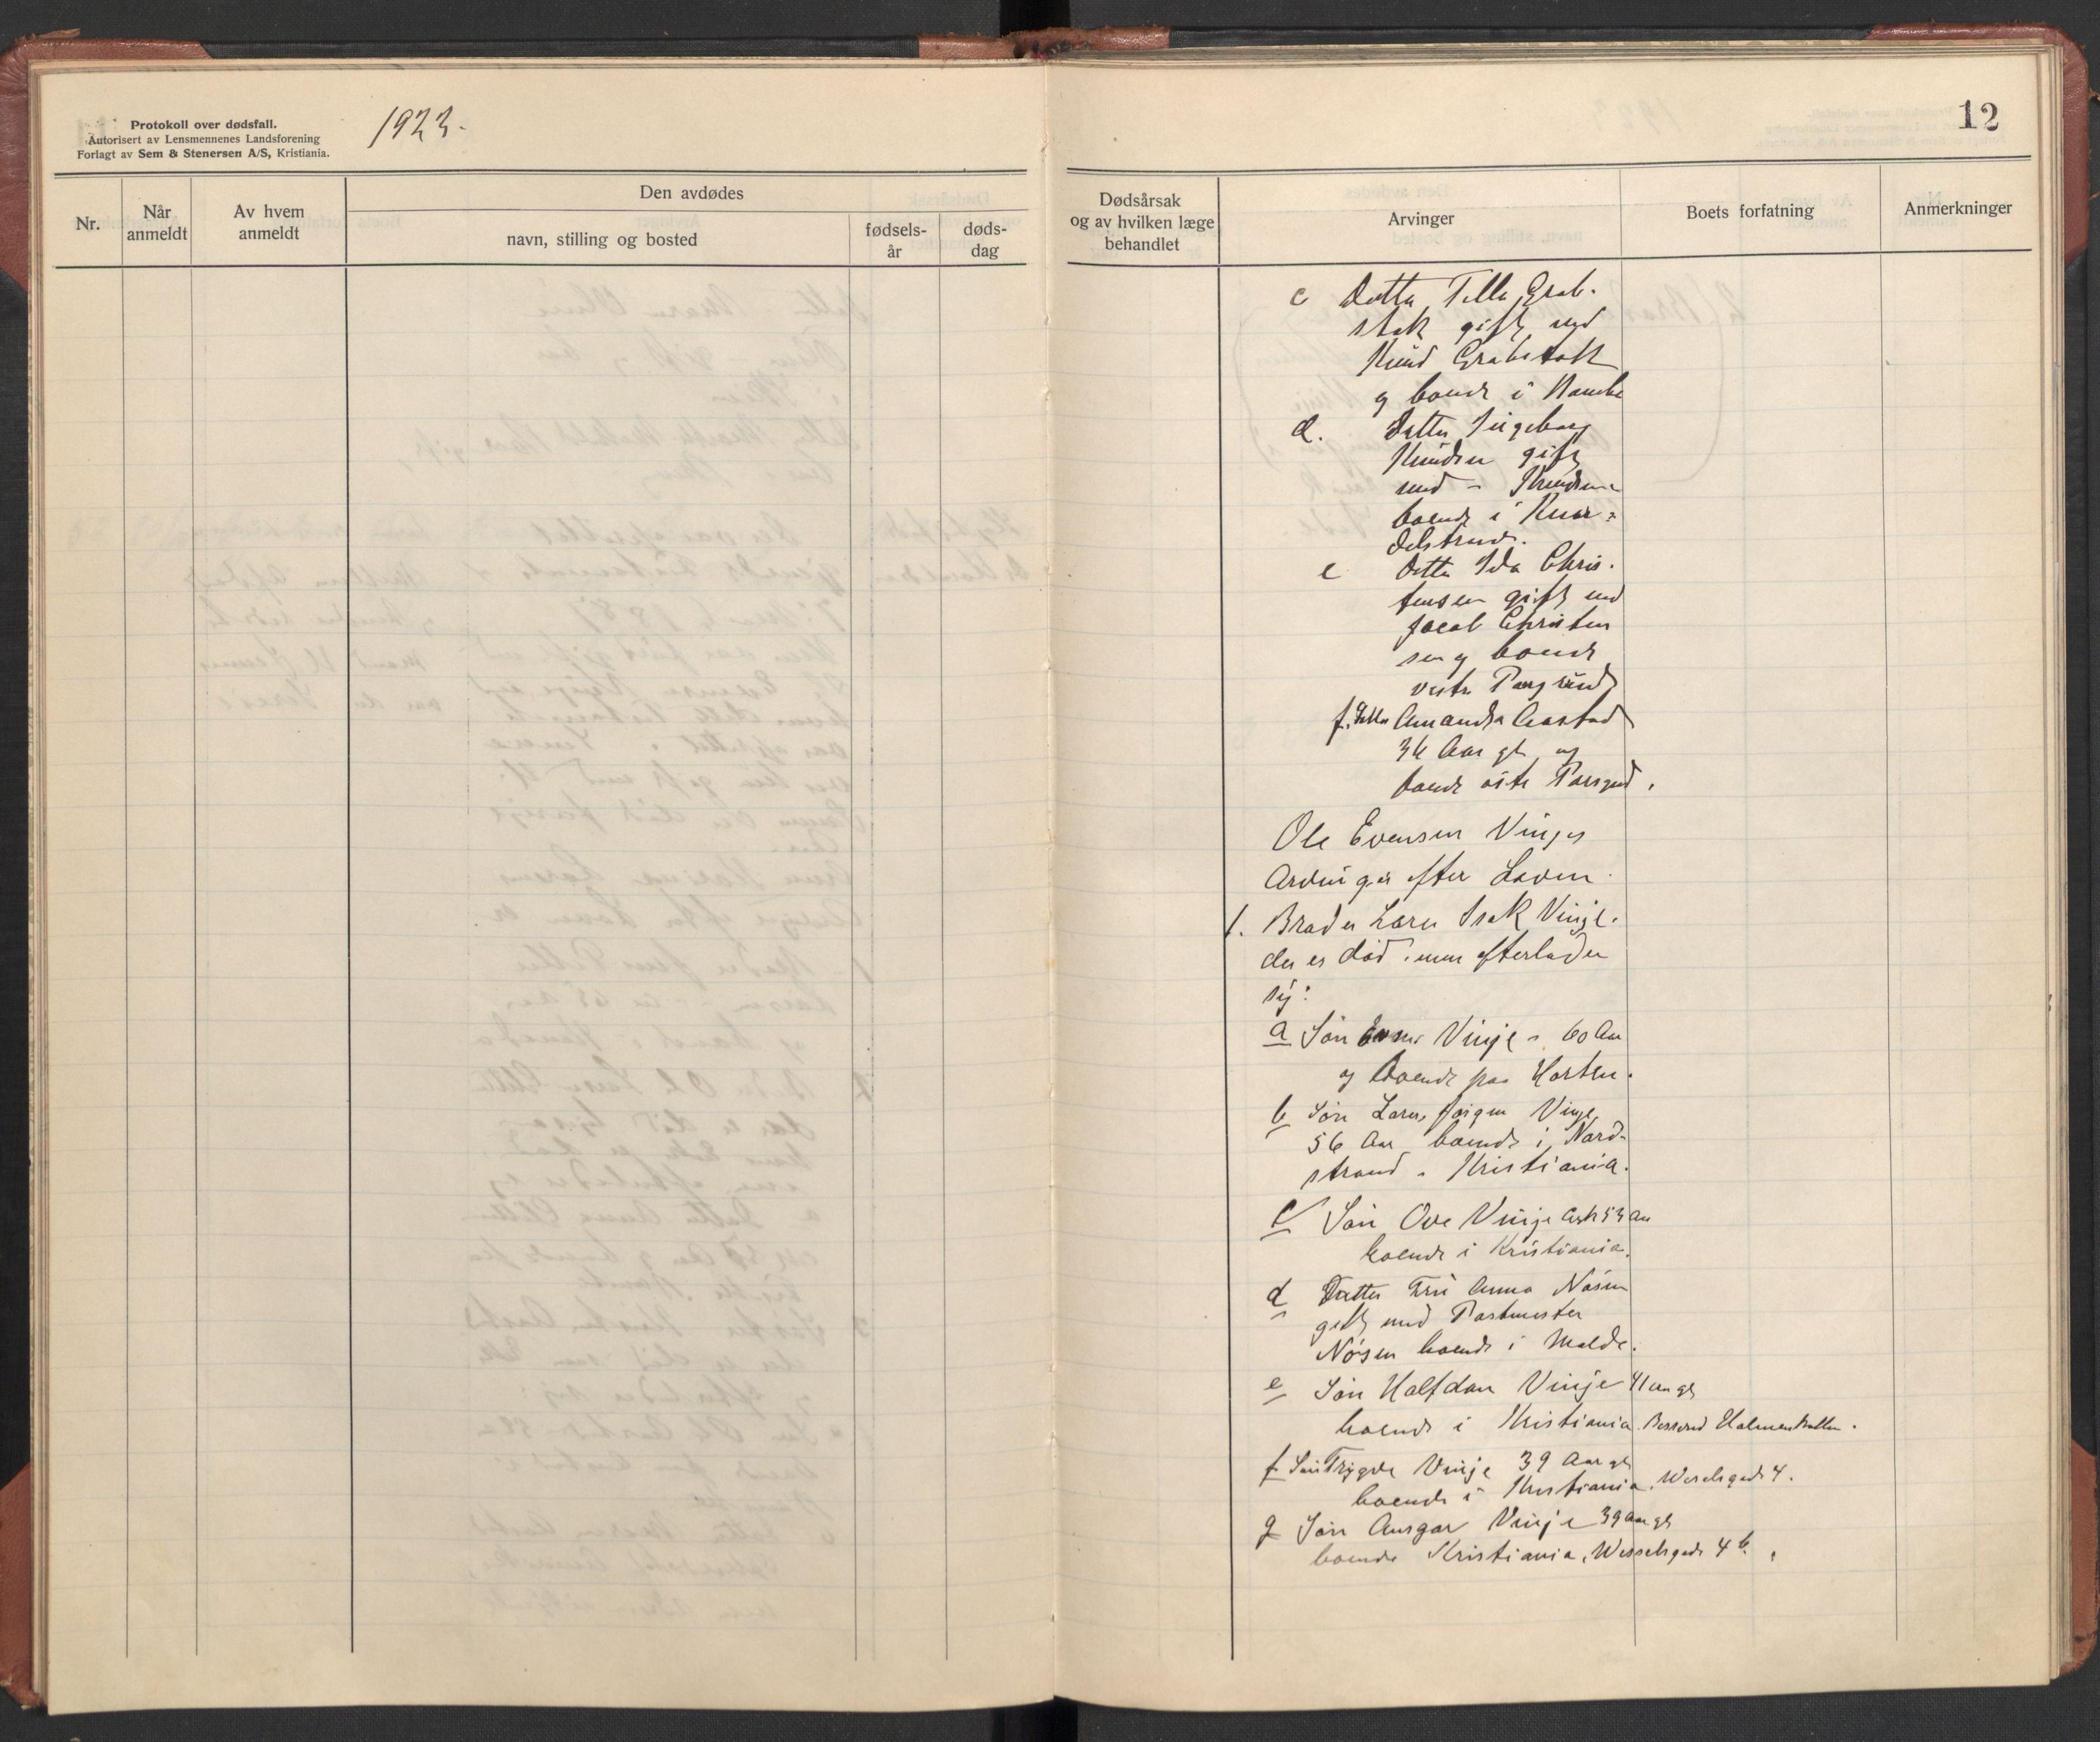 Protokoll over dødsfall.
Autorisert av Lensmennenes Landsforening
Forlagt av Sem & Stenersen A/S, Kristiania.
1923.
Nr.
Når anmeldt
Av hvem anmeldt
Den avdødes
navn, stilling og bosted
fødsels-år
døds-dag
12
Dødsårsak
og av hvilken læge
behandlet
Arvinger
Boets forfatning
Anmerkninger
c Datter Tilla Grab-
stok gift med
Knud Grabstok
og boende i
d. Datter Ingeborg
Knudsen gift
med - Knudsen
boende i
e Datter Ida Chris-
tensen gift med
Jacob Christen
sen og boende
vestre Porsgrund
f. Datter Amanda Aastad
36 Aar gl og
boende østre Porsgrund.
Ole Evensen Vinjes
Arvinger efter Loven.
1. Broder Lars Isak Vinje.
der er død men efterlader
sig:
a Søn Vinje - 60 Aar
og boende paa Horten.
b Søn Lars Jørgen Vinje
56 Aar boende i Nord-
strand - Kristiania.
c Søn Ove Vinje 53 Aar
boende i Kristiania.
d Datter Fru Anna Nøsen
gift med Postmester
Nøsen boende i Molde.
e Søn Halfdan Vinje 41 aar gl
boende i Kristiania Besserud Holmenkollen.
f Søn Trygve Vinje 39 Aar gl
boende i Kristiania, Weselsgade 4.
g Søn Ansgar Vinje 39 aar gl
boende Kristiania, Wesselsgade 4 b.